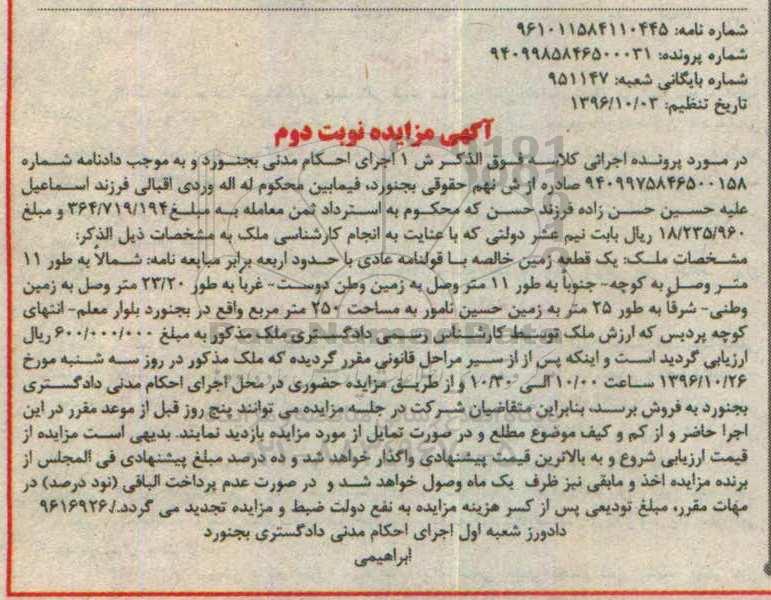 شماره نامه: ۹۶۱۰۱۱۵۸۴۱۱۰۴۴۵
شماره پرونده: ۹۴۰۹۹۸۵۸۴۶۵۰۰۰۳۱
شماره بایگانی شعبه: ۹۵۱۱۴۷
تاریخ تنظیم: ۱۳۹۶/۱۰/۰۳
آگهی مزایده نوبت دوم
در مورد پرونده اجرائی کلاسه فوق الذکر ش ۱ اجرای احکام مدنی بجنورد و به موجب دادنامه شماره
۹۴۰۹۹۷۵۸۴۶۵۰۰۱۵۸ صادره از ش نهم حقوقی بجنورد، فیمابین محکوم له اله وردی اقبالی فرزند اسماعیل
علیه حسین حسن زاده فرزند حسن که محکوم به استرداد ثمن معامله به مبلغ ۳۶۴/۷۱۹/۱۹۴ و مبلغ
۱۸/۲۳۵/۹۶۰ ریال بابت نیم عشر دولتی که با عنایت به انجام کارشناسی ملک به مشخصات ذیل الذکر:
مشخصات ملک: یک قطعه زمین خالصه با قولنامه عادی با حدود اربعه برابر مبایعه نامه: شمالاً به طور ۱۱
متر وصل به کوچه- جنوباً به طور ۱۱ متر وصل به زمین وطن دوست- غرباً به طور ۲۳/۲۰ متر وصل به زمین
وطنی- شرقاً به طور ۲۵ متر به زمین حسین نامور به مساحت ۲۵۰ متر مربع واقع در بجنورد بلوار معلم- انتهای
کوچه پردیس که ارزش ملک توسط کارشناس رسمی دادگستری ملک مذکور به مبلغ ۶۰۰/۰۰۰/۰۰۰ ریال
ارزیابی گردید است و اینکه پس از از سیر مراحل قانونی مقرر گردیده که ملک مذکور در روز سه شنبه مورخ
۱۳۹۶/۱۰/۲۶ ساعت ۱۰/۰۰ الی ۱۰/۳۰ و از طریق مزایده حضوری در محل اجرای احکام مدنی دادگستری
بجنورد به فروش برسد، بنابراین متقاضیان شرکت در جلسه مزایده می توانند پنج روز قبل از موعد مقرر در این
اجرا حاضر و از کم و کیف موضوع مطلع و در صورت تمایل از مورد مزایده بازدید نمایند. بدیهی است مزایده از
قیمت ارزیابی شروع و به بالاترین قیمت پیشنهادی واگذار خواهد شد و ده درصد مبلغ پیشنهادی فی المجلس از
برنده مزایده اخذ و مابقی نیز ظرف یک ماه وصول خواهد شد و در صورت عدم پرداخت الباقی (نود درصد) در
مهات مقرر، مبلغ تودیعی پس از کسر هزینه مزایده به نفع دولت ضبط و مزایده تجدید می گردد./۹۶۱۶۹۲۶
دادورز شعبه اول اجرای احکام مدنی دادگستری بجنورد
ابراهیمی